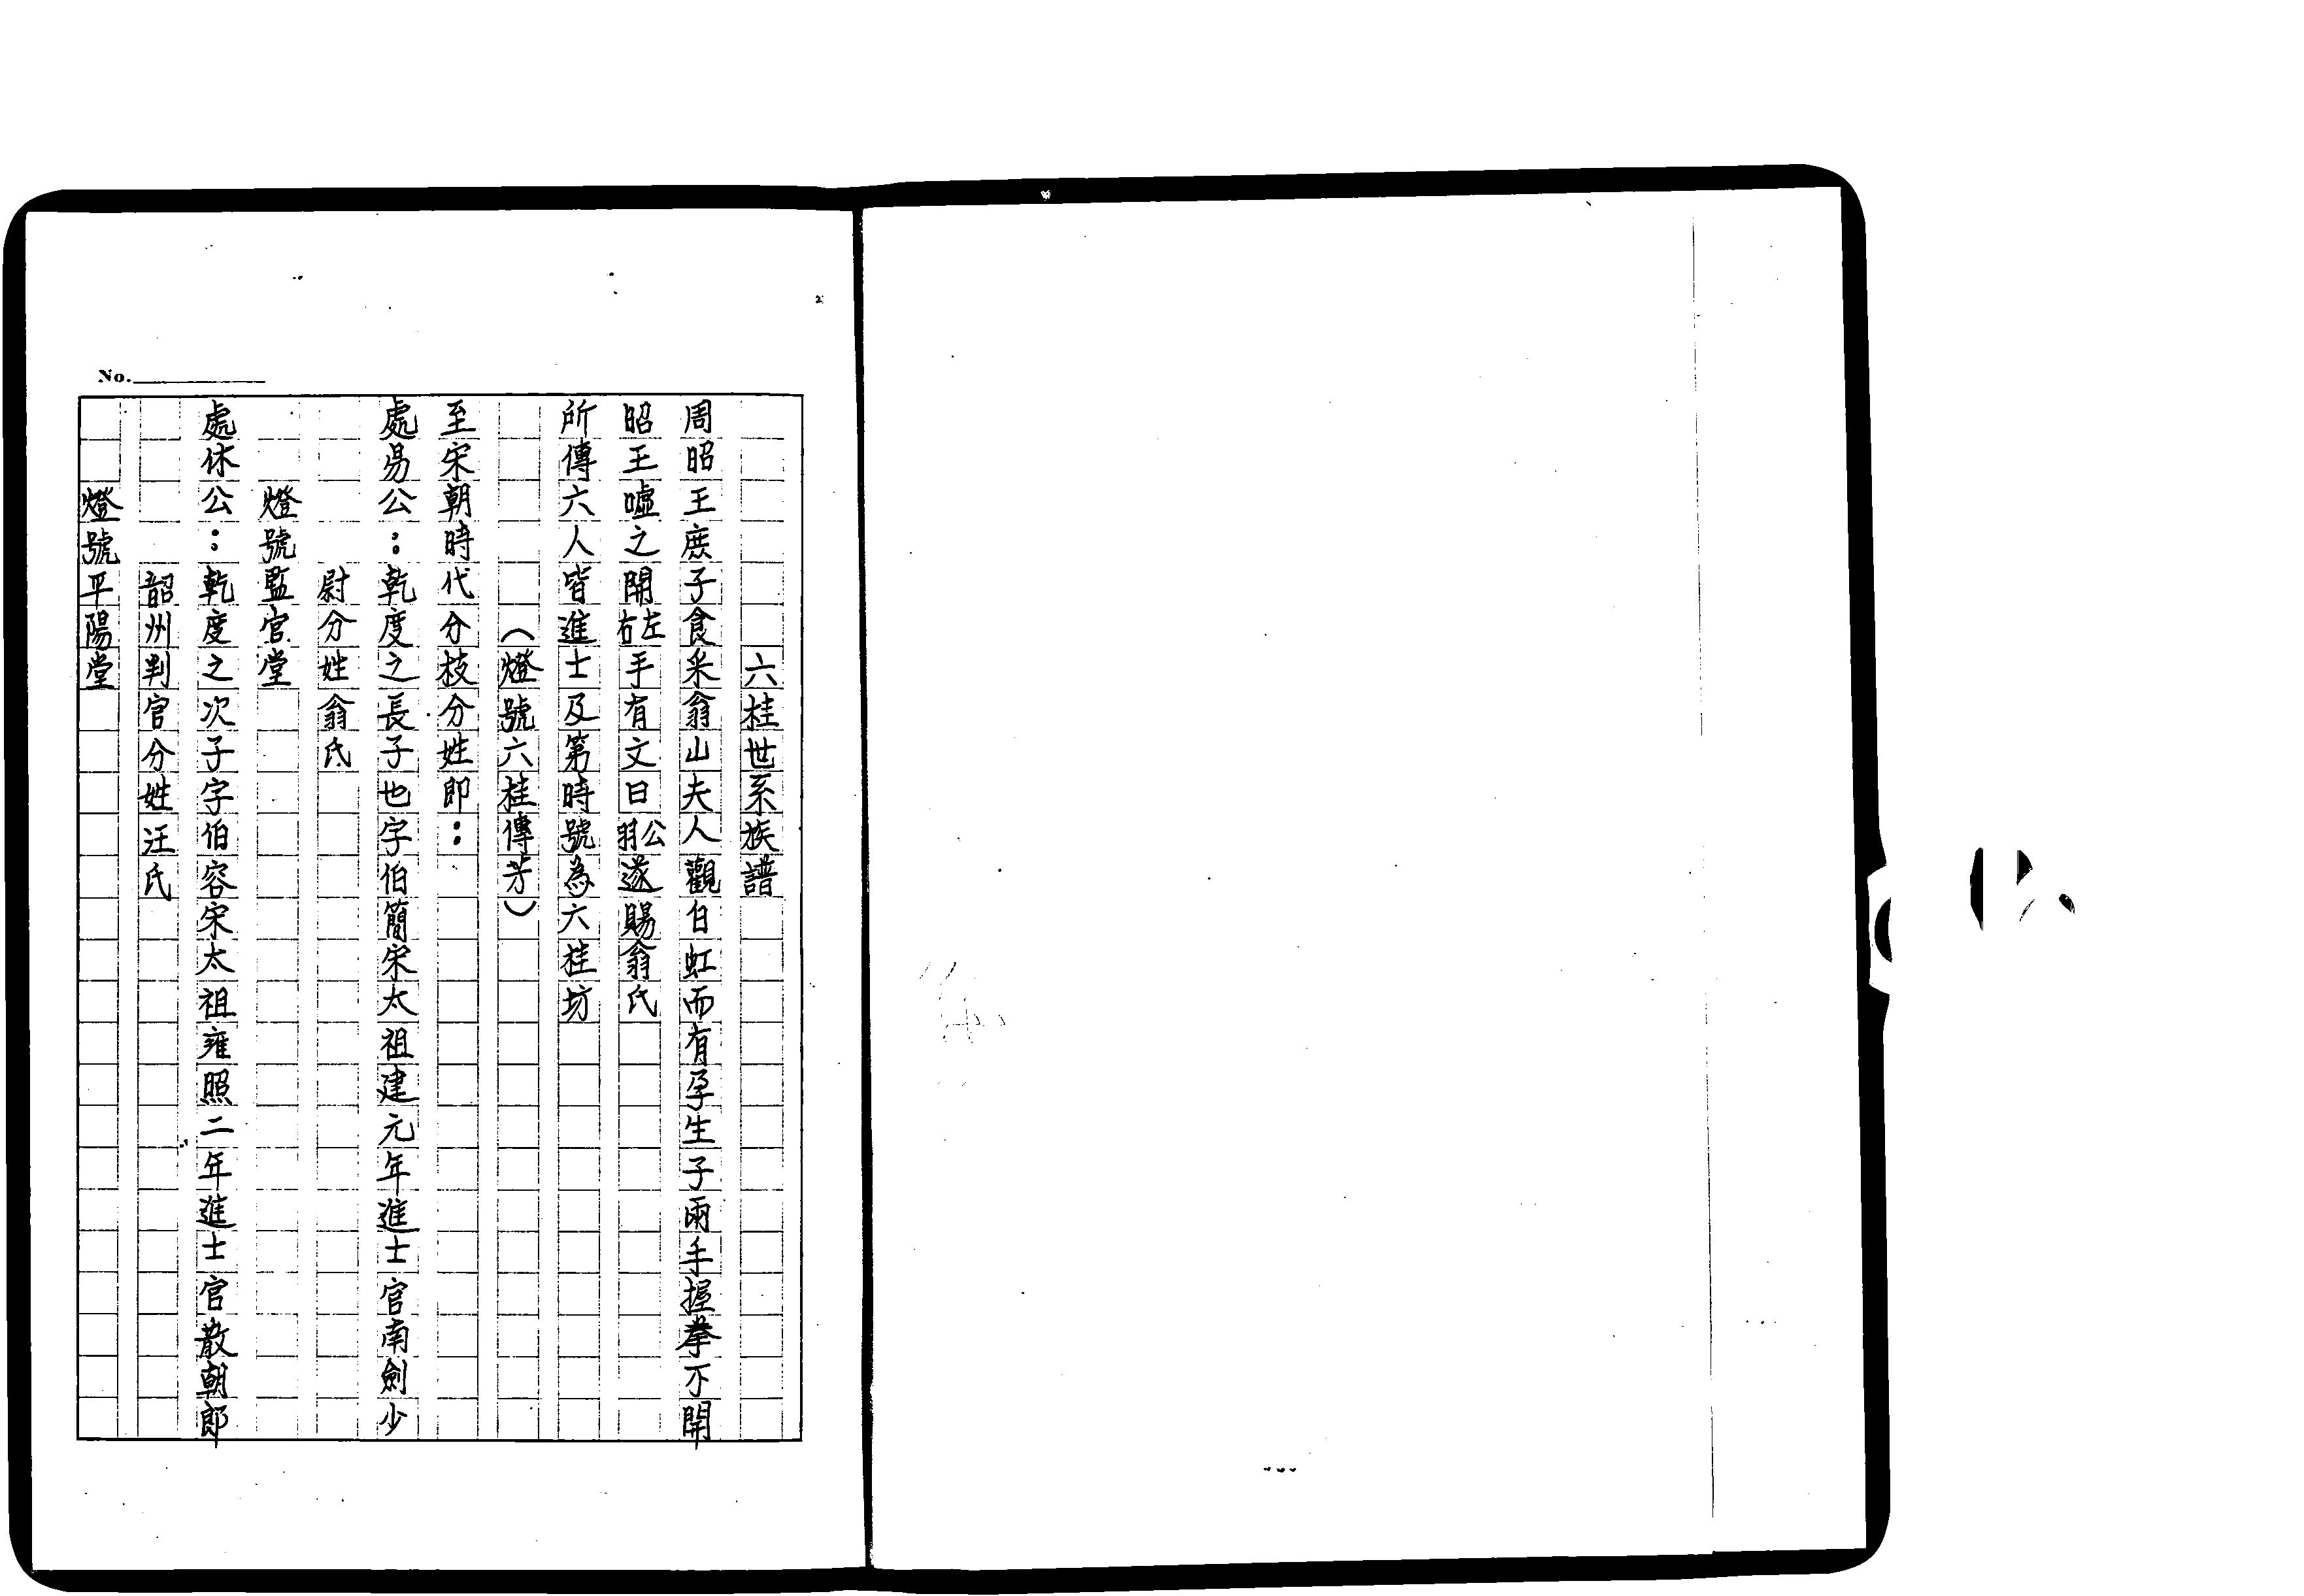 No.
六桂世系族譜
周昭王庶子食采翁山夫人觀白虹而有孕生子兩手握拳不開
昭王噓之開左右手有文曰公羽遂賜翁氏
所傳六人皆進士及第時號為六桂坊
(燈號六桂傳芳)
至宋朝時代分枝分姓即:
處易公:乾度之長子也字伯簡宋太祖建元年進士官南劍少
尉分姓翁氏
燈號監官堂
處休公:乾度之次子字伯容宋太祖雍照二年進士官散朝郎
韶州判官分姓汪氏
燈號平陽堂